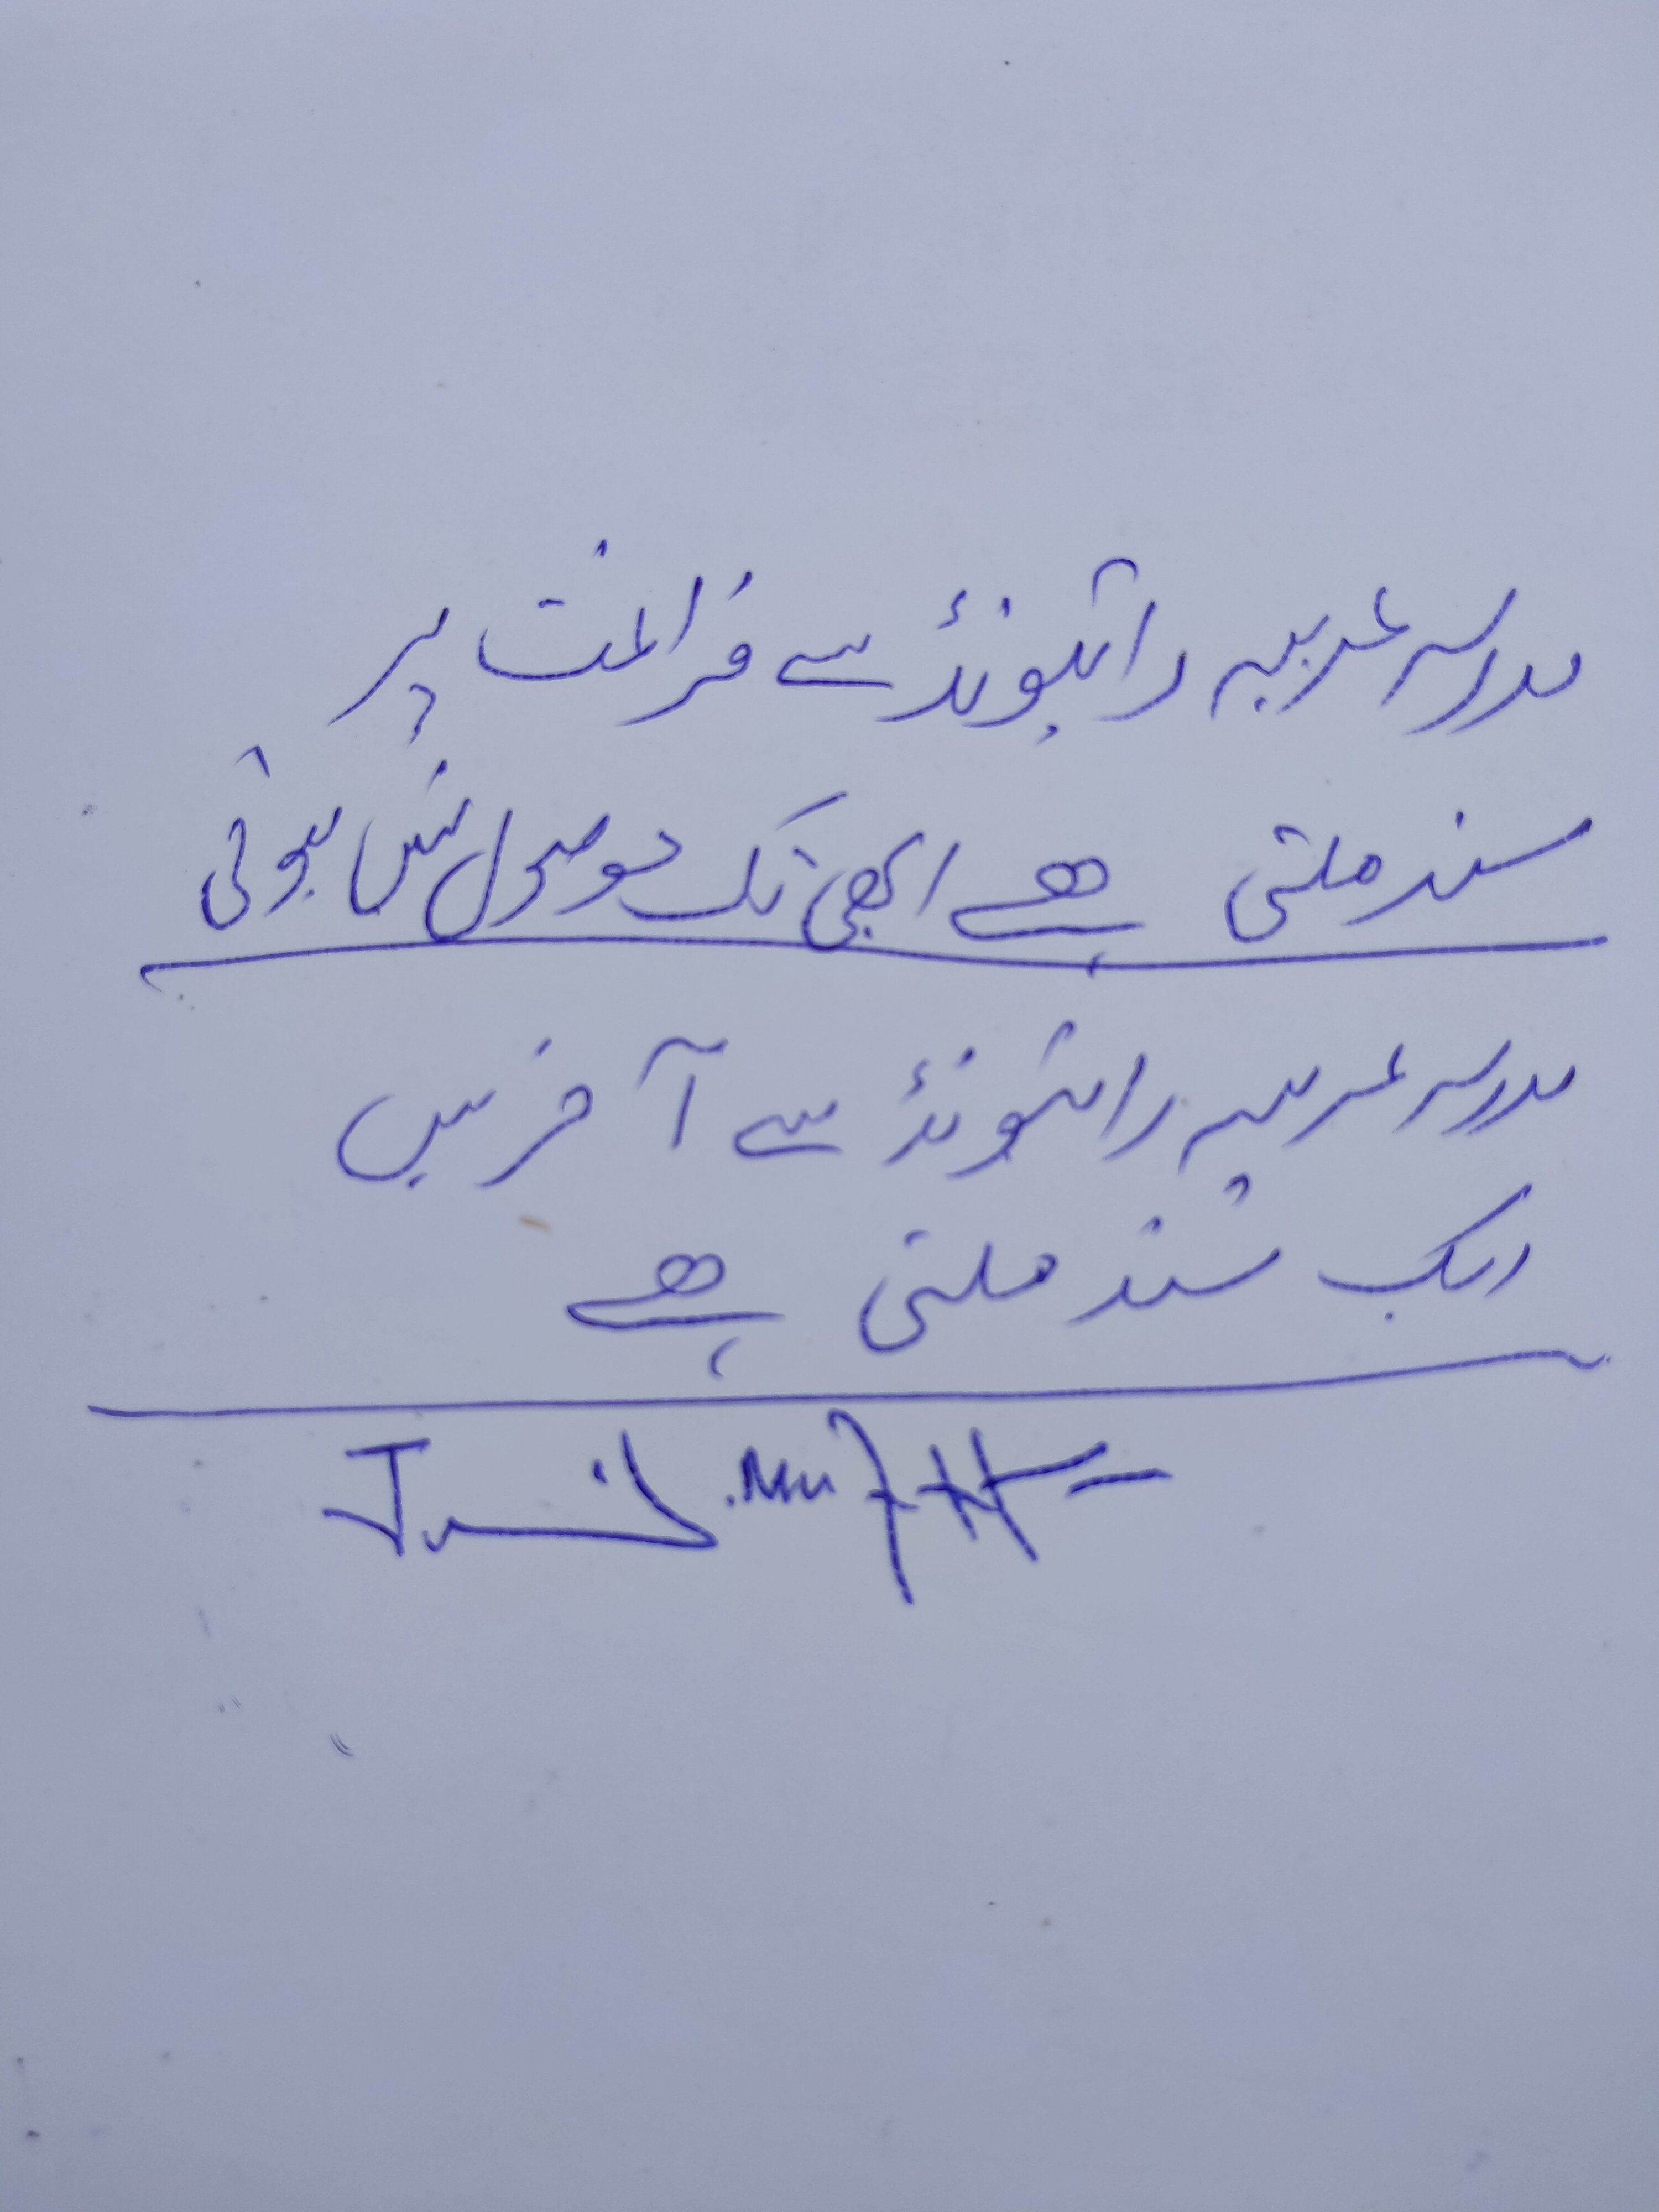 مدرسہ عربیہ رائیونڈ سے فراغت پر
سند ملتی ہے ابھی تک موصول نہیں ہوئی
مدرسہ عربیہ رائیونڈ سے آخر میں
ایک سند ملتی ہے